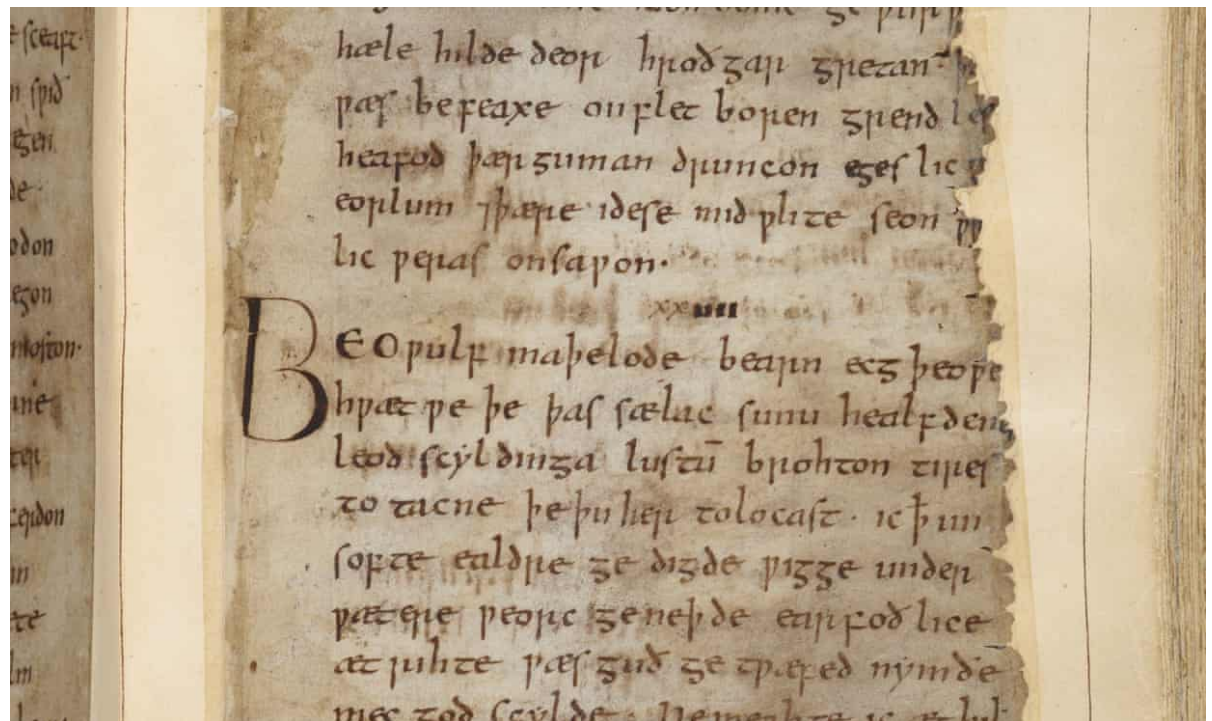 hæle hilde deor hroðgar gretan·
ƿæs be feaxe onflet boren grend
heafod þær guman druncon eges lic
eorlum ⁊ þære idese mid ƿlite seon
lic ƿeras onsaƿon·
xxiiii
BEOƿulf maþelode bearn ecg þeoƿe
hƿæt ƿe þe þas sælac sunu healfdene
leod scyldinga lustū brohton tires
to tacne þe þu her tolocast· ic ꝥ un
softe ealdre ge digde ƿigge under
ƿætere ƿeorc geneþde earfoð lice
æt rihte ƿæs guð ge tƿæfed nymðe
mec god scylde· Ne meahte ic æt hil